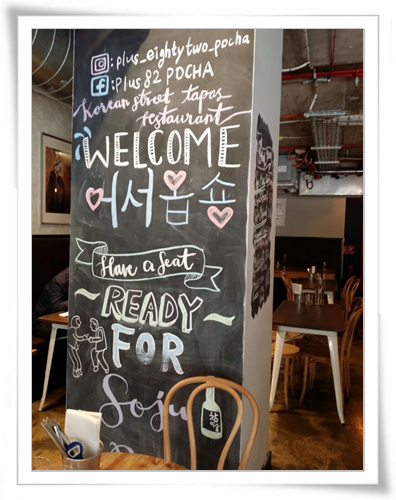 : plus_eightytwo_pocha
: Plus 82 POCHA
Korean street tapas
restaurant
WELCOME
어서옵쇼
Have a Seat
READY
FOR
Soju